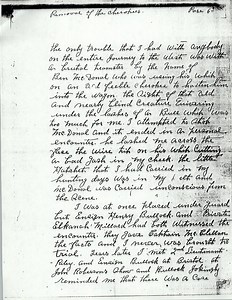 Removal of the Cherokees. Page 6
the only trouble that I had with anybody
on the entire journey to the West was with
a brutal teamster by the name of
Ben McDonal who was using his whip
on an old feeble Cherokee to hasten him
into the wagon. The sight of that old
and nearly blind creature quivering
under the lashes of a bull whip was
too much for me. I attempted to stop
McDonal and it ended in a personal
encounter. He lashed me across the
face the wire tip on his whip cutting
a bad gash in my cheek. The little
hatchet that I had carried in my
hunting days was in my belt and
McDonal was carried unconscious from
the scene.
I was at once placed under guard
but Ensign Henry Bullock and Private
Elkanah Millard had both witnessed the
encounter. They gave Captain McClellan
the facts and I never was brought to
trial. Years later I met 2nd Lieutenant
Riley and Ensign Bullock at Bristol at
John Roberson's Show and Bullock jokingly
reminded me that there was a case